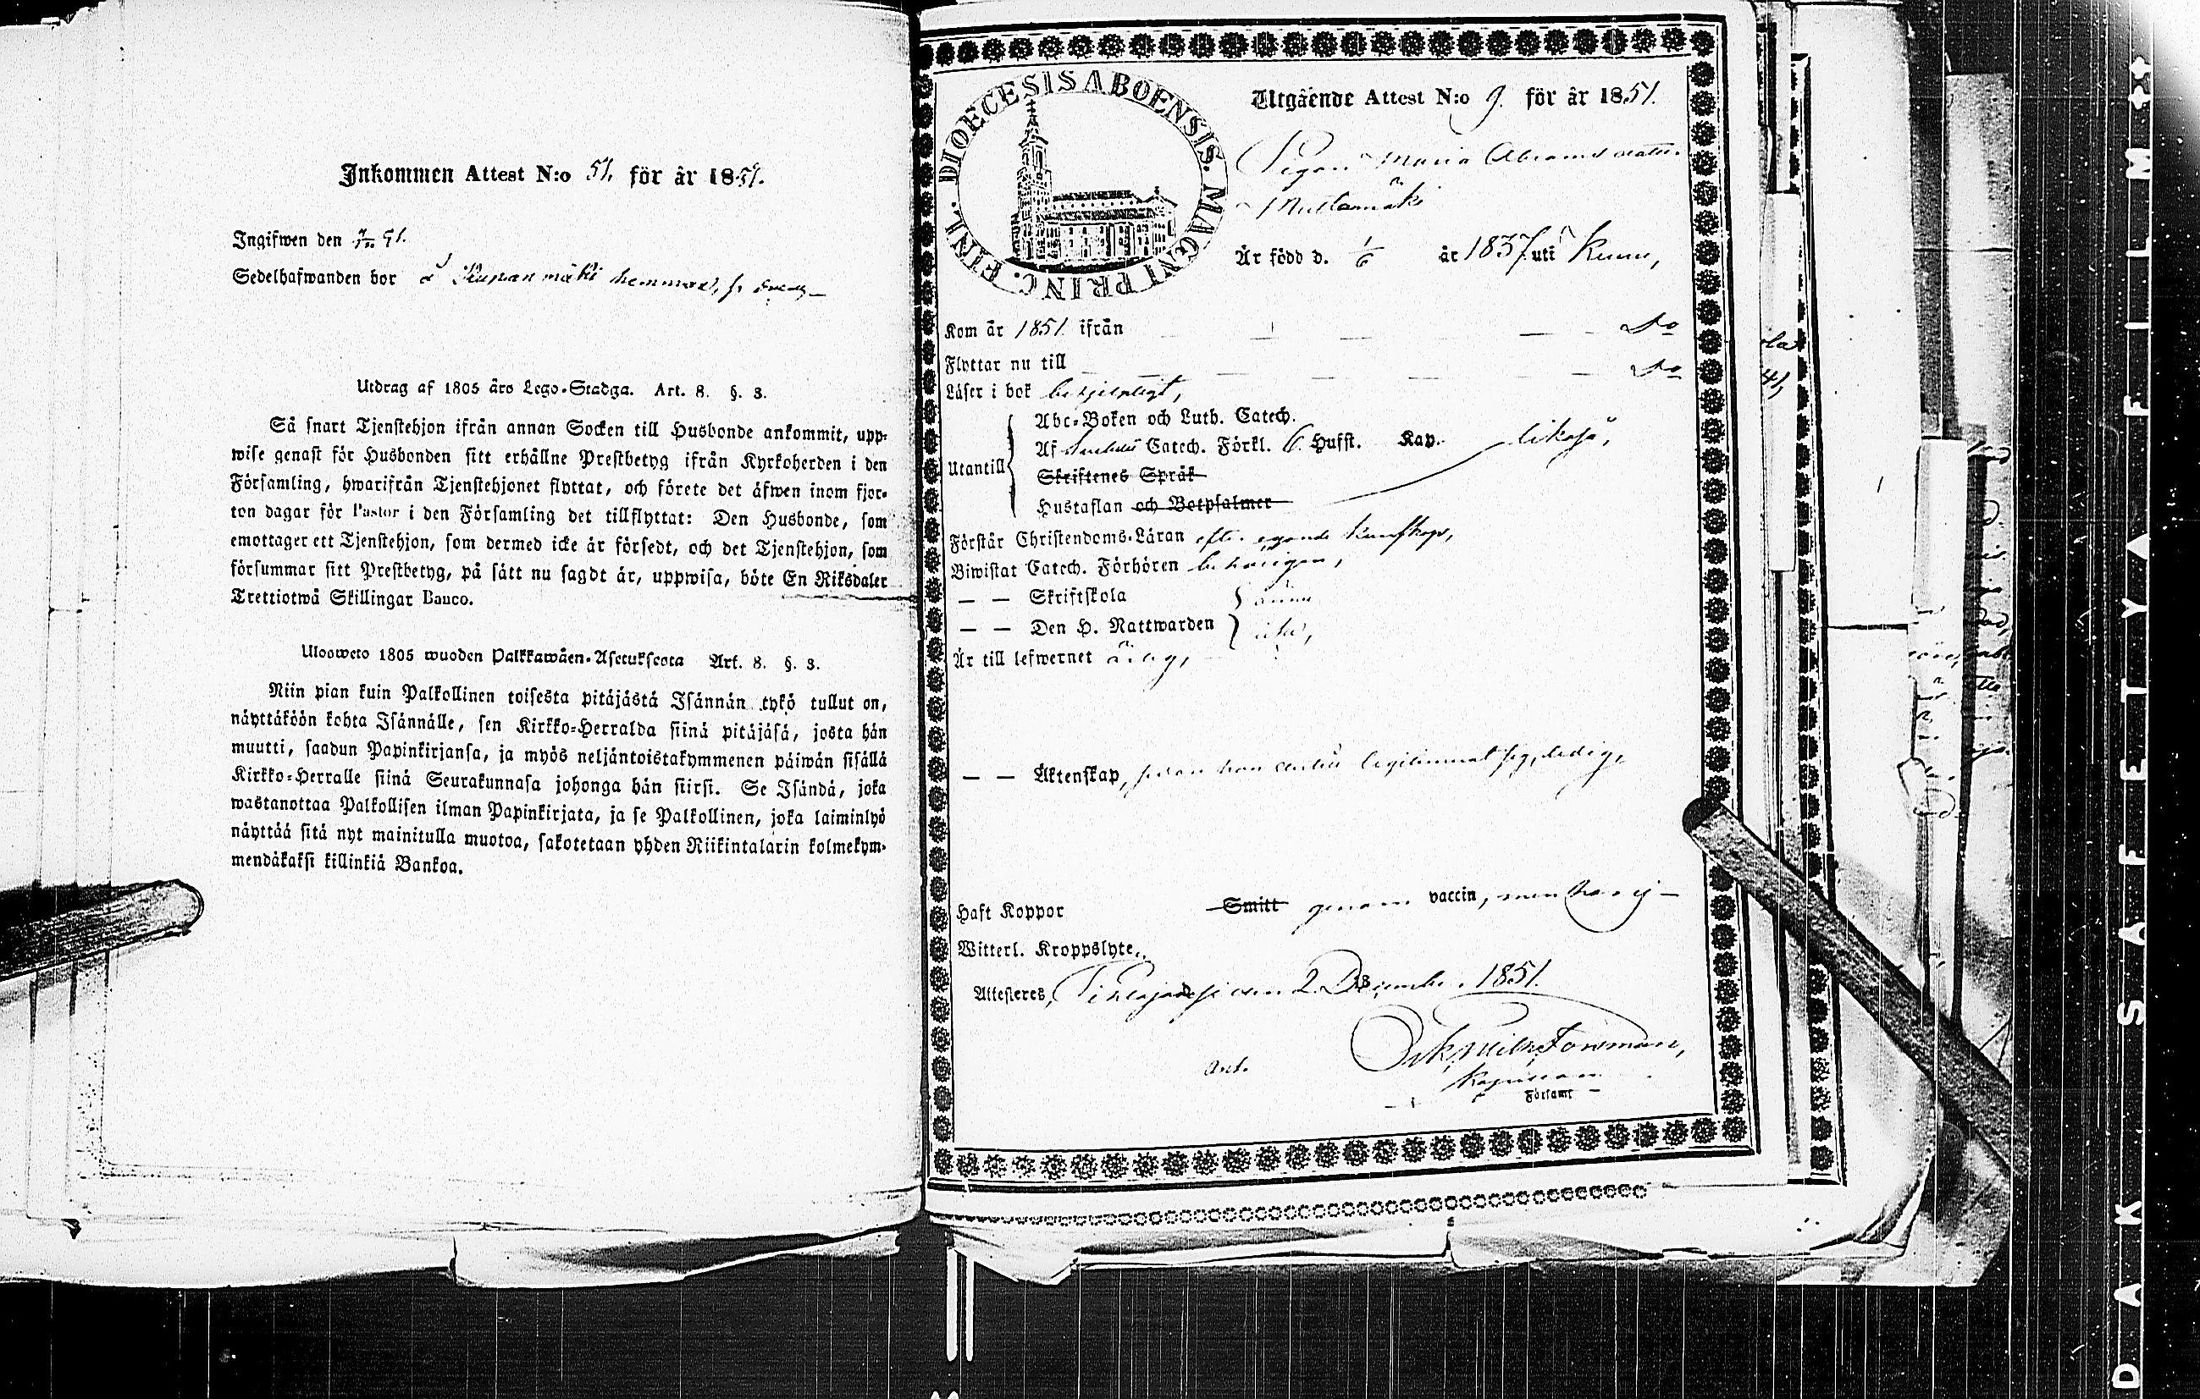 Inkommen Attest N:o 51. för år 1851.
Ingifwen den
Sedelhafwanden bor å hemman,
Utdrag af 1805 års Lego-Stadga. Art. 8. §. 3.
Så snart Tjenstehjon ifrån annan Socken till Husbonde ankommit, upp-
wise genast för Husbonden sitt erhållne Prestbetyg ifrån Kyrkoherden i den
Församling, hwarifrån Tjenstehjonet flyttat, och förete det äfwen inom fjor-
ton dagar för Pastor i den Församling det tillflyttat: Den Husbonde, som
emottager ett Tjenstehjon, som dermed icke är försedt, och det Tjenstehjon, som
försummar sitt Prestbetyg, på sätt nu sagdt är, uppwisa, böte En Riksdaler
Trettiotwå Skillingar Banco.
Ulosweto 1805 wuoden Palkkawäen-Asetuksesta Art. 8. §. 3.
Niin pian kuin Palkollinen toisesta pitäjästä Isännän tykö tullut on,
näyttäköön kohta Isännälle, sen Kirkko-Herralda siinä pitäjäsä, josta hän
muutti, saadun Papinkirjansa, ja myös neljäntoistakymmenen päiwän sisällä
Kirkko-Herralle siinä Seurakunnasa johonga hän siirsi. Se Isändä, joka
wastanottaa Palkollisen ilman Papinkirjata, ja se Palkollinen, joka laiminlyö
näyttää sitä nyt mainitulla muotoa, sakotetaan yhden Riikintalarin kolmekym-
mendäkaksi killinkiä Bankoa.
DIOECESIS ABOENSIS. MAGNI PRINC. FINL.
Utgående Attest N:o 9. för år 1851.
Pigan Maria Abramsdotter
Är född d. 1/6 år 1837 uti
Kom år 1851 ifrån — — — — Do
Flyttar nu till — — — — Do
Läser i bok behjelpligt,
Utantill
Abc-Boken och Luth. Catech.
Af Catech. Förkl. 6. Hufst. Kap. likaså,
Skriftenes Språk
Hustaflan och Botpsalmer
Förstår Christendoms-Läran efter egande kunskap,
Biwistat Catech. Förhören behörigen,
— — Skriftskola ännu
— — Den H. Nattwarden icke,
Är till lefwernet ärlig,
— — Äktenskap, ledig,
Haft Koppor Smitt genom vaccin, men har ej —
Witterl. Kroppslyte.
Attesteres, den 2 December 1851.
Forsman,
Kapellan
Församl
DAK SAFETY A FILM